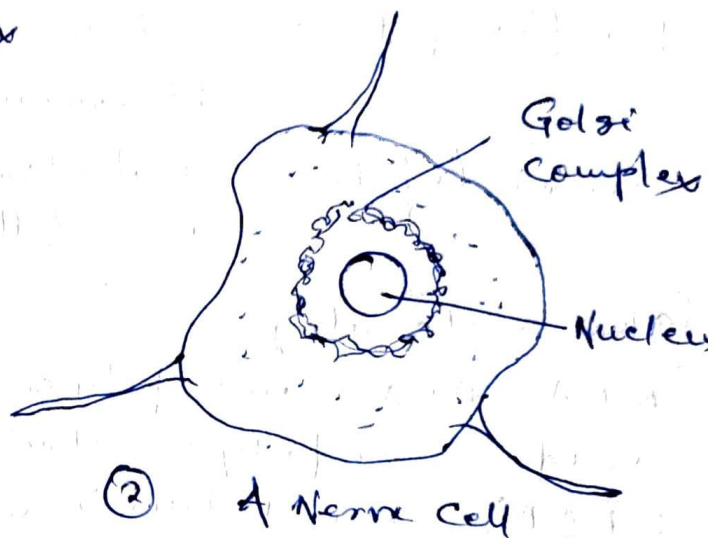 Golgi
Complex
Nucleus
② A Nerve Cell